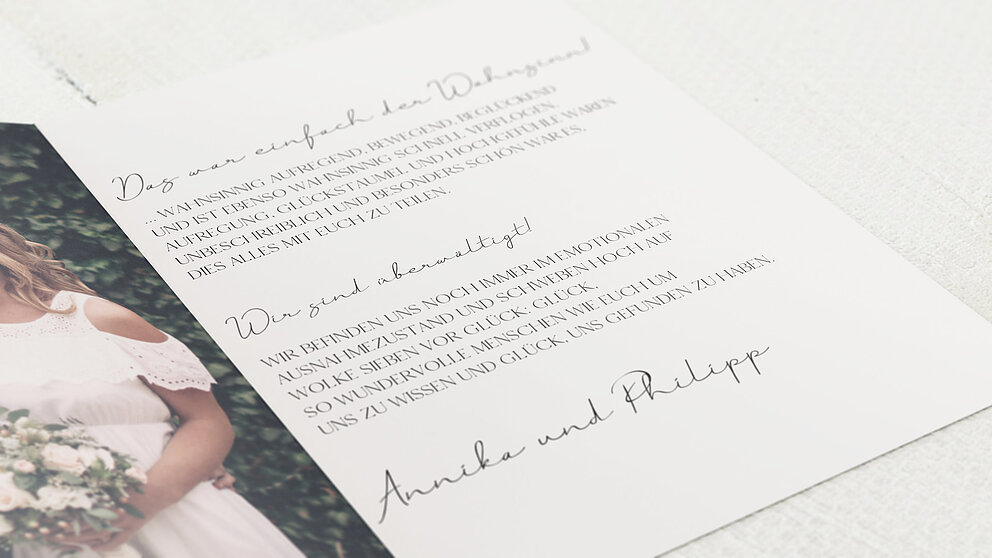 Das war einfach der Wahnsinn!
... WAHNSINNIG AUFREGEND, BEWEGEND, BEGLÜCKEND
UND IST EBENSO WAHNSINNIG SCHNELL VERFLOGEN.
AUFREGUNG, GLÜCKSTAUMEL UND HOCHGEFÜHLE WAREN
UNBESCHREIBLICH UND BESONDERS SCHÖN WAR ES,
DIES ALLES MIT EUCH ZU TEILEN.
Wir sind überwältigt!
WIR BEFINDEN UNS NOCH IMMER IM EMOTIONALEN
AUSNAHMEZUSTAND UND SCHWEBEN HOCH AUF
WOLKE SIEBEN VOR GLÜCK. GLÜCK,
SO WUNDERVOLLE MENSCHEN WIE EUCH UM
UNS ZU WISSEN UND GLÜCK, UNS GEFUNDEN ZU HABEN.
Annika und Philipp